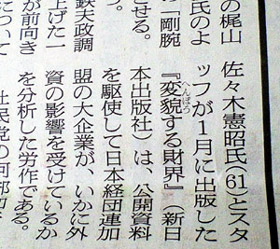 の梶山
氏のよ
「剛腕
せる。
鉄夫政調
上げた一
が前向き
について
佐々木憲昭氏(61)とスタ
ッフが1月に出版した
『変貌する財界』(新日
本出版社)は、公開資料
を駆使して日本経団連加
盟の大企業が、いかに外
資の影響を受けているか
を分析した労作である。
社民党の阿部